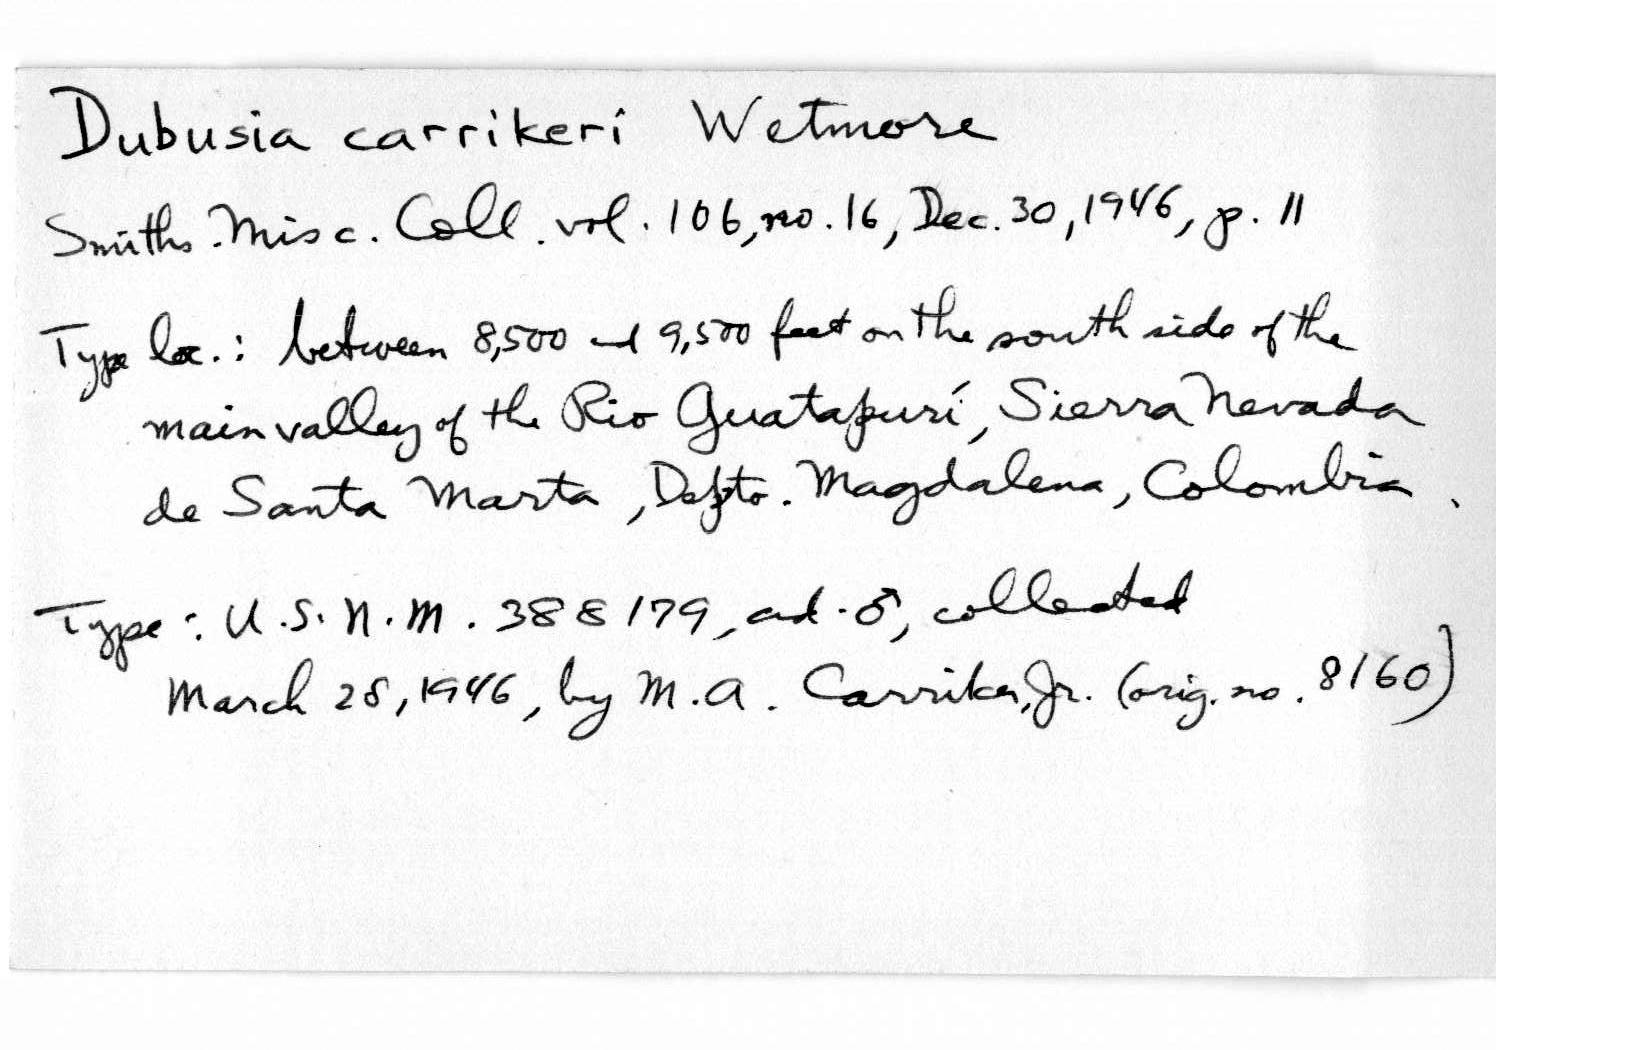 Dubusia carrikeri Wetmore
Smiths. Misc. Coll. vol. 106, no. 16, Dec. 30, 1946, p. 11
Type loc.: between 8,500 and 9,500 feet on the south side of the
main valley of the Rio Guatapurí, Sierra Nevada
de Santa Marta, Depto. Magdalena, Colombia.
Type: U.S.N.M. 388179, ad. ♂, collected
March 28, 1946, by M.A. Carriker, Jr. (orig. no. 8160)